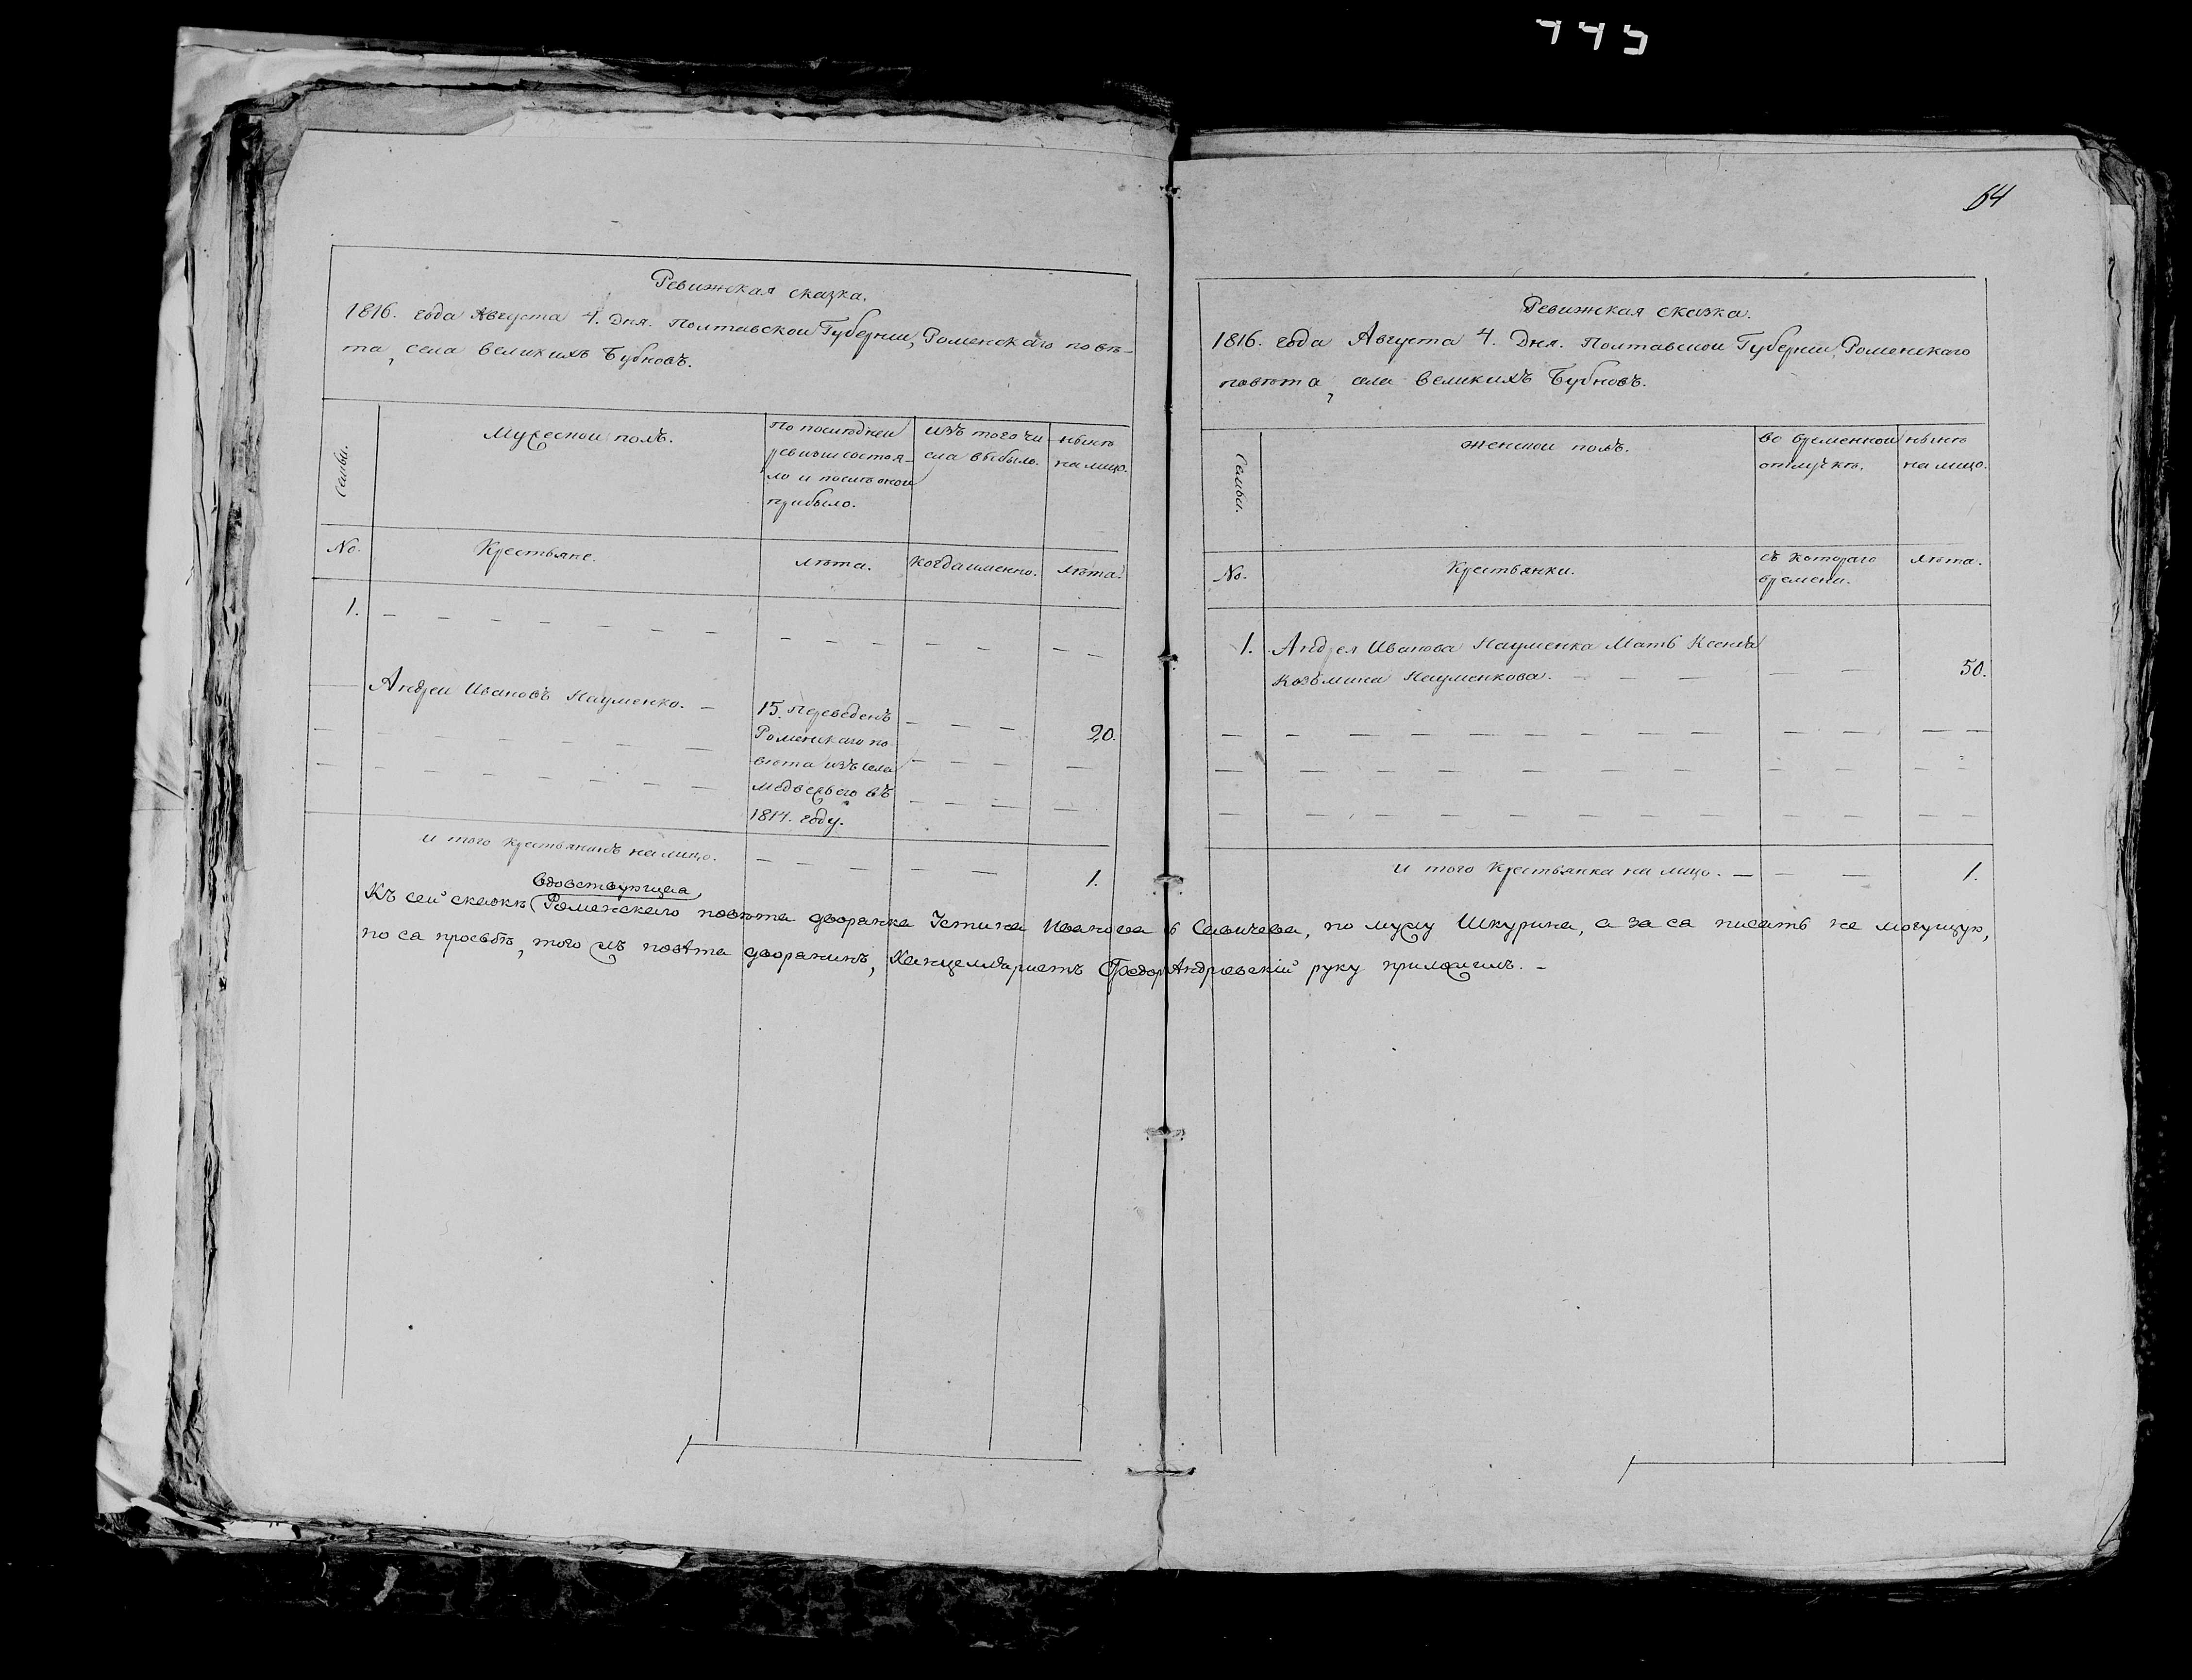 445
64
Ревижская сказка.
1816. года Августа 4. Дня. Полтавской Губернии, Роменского повѣ-
та, села Великихъ Бубновъ.
Семьи.
Мужеской полъ.
По последней
ревизіи состоя-
ло и после оной
прибыло.
изъ того чи
сла выбыло.
нынѣ
на лицо.
No.
Крестьяне.
лѣта.
когда именно.
лѣта.
1.
Андрей Ивановъ Науменко.
15. переведенъ
Роменскаго по
вѣта изъ села
Медвежего въ
1814. году.
20.
и того крестьянинъ на лицо.
1.
Ревижская сказка.
1816. года Августа 4. Дня. Полтавской Губерніи, Роменскаго
повѣта, села Великихъ Бубновъ.
Семьи.
женской полъ.
во временной
отлучкѣ.
нынѣ
на лицо.
No.
Крестьянки.
съ котораго
времени.
лѣта.
1. Андрея Иванова Науменка Мать Ксенія
Козьмина Науменкова.
50.
и того Крестьянка на лицо.
1.
вдовствующая,
Къ сей сказкѣ Роменскаго повѣта дворянка Устина Иванова Савичева, по мужу Шкурина, а за са писать не могущую,
по са просьбѣ, того жъ повѣта дворянинъ, Канцеляристъ Федор Андріевскій руку приложилъ.